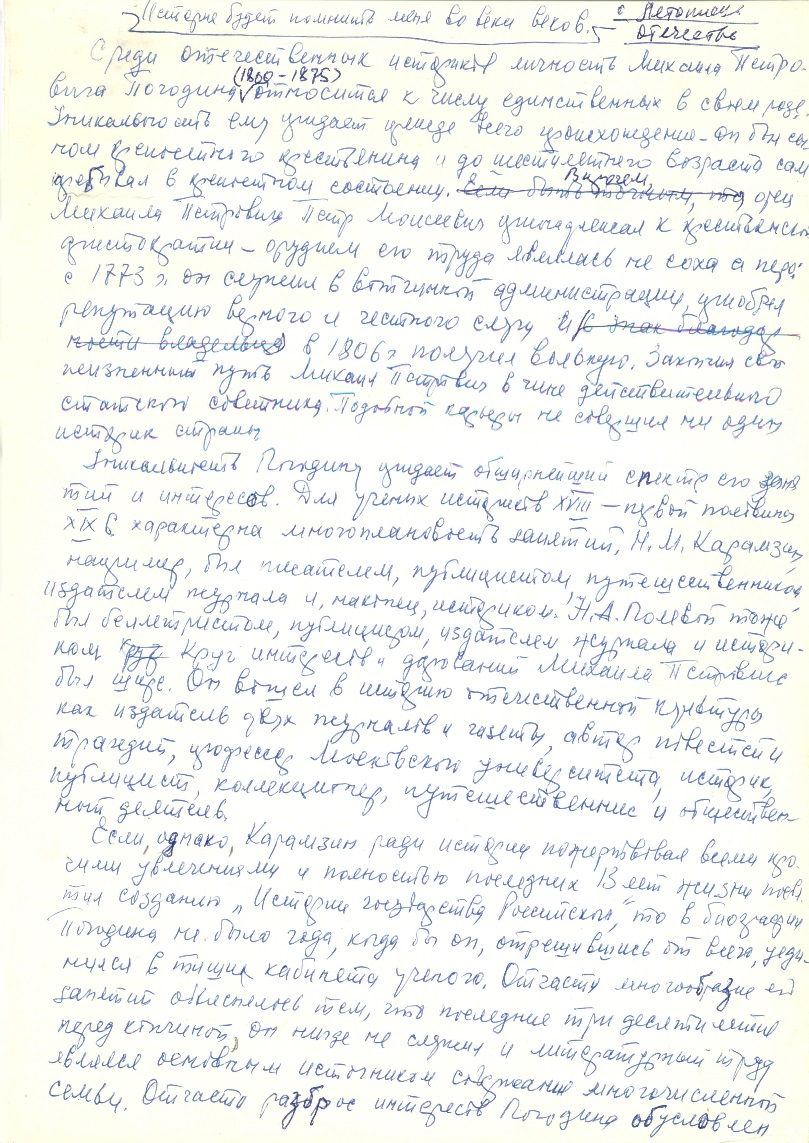 "История будет помнить меня во веки веков." с Летописца
отечества
Среди отечественных историков личность Михаила Петро-
вича Погодина (1800-1875) относится к числу единственных в своем роде.
Уникальность ему придает прежде всего происхождение – он был сы-
ном крепостного крестьянина и до шестилетнего возраста сам
пребывал в крепостном состоянии. Если быть точным, то Впрочем, отец
Михаила Петровича Петр Моисеевич принадлежал к крестьянской
аристократии – орудием его труда являлась не соха а перо:
с 1773 г. он служил в вотчинной администрации, приобрел
репутацию верного и честного слуги и (в знак благодар-
ности владельца) в 1806 г получил вольную. Закончил свой
жизненный путь Михаил Петрович в чине действительного
статского советника. Подобной карьеры не совершил ни один
историк страны.
Уникальность Погодину придает обширнейший спектр его заня-
тий и интересов. Для ученых историков XVIII – первой половины
XIX в характерна многоплановость занятий, Н.М. Карамзин,
например, был писателем, публицистом, путешественником,
издателем журнала и, наконец, историком. Н.А. Полевой тоже
был беллетристом, публицистом, издателем журнала и истори-
ком. Круг интересов и дарований Михаила Петровича
был шире. Он вошел в историю отечественной культуры
как издатель двух журналов и газеты, автор повестей и
трагедий, профессор Московского университета, историк,
публицист, коллекционер, путешественник и обществен-
ный деятель.
Если, однако, Карамзин ради истории пожертвовал всеми про-
чими увлечениями и полностью последних 13 лет жизни посвя-
тил созданию „Истории государства Российского", то в биографии
Погодина не было года, когда бы он, отрешившись от всего, уеди-
нился в тиши кабинета ученого. Отчасти многообразие его
занятий объяснялось тем, что последние три десятилетия
перед кончиной он нигде не служил и литературный труд
являлся основным источником содержания многочисленной
семьи. Отчасти разброс интересов Погодина обусловлен